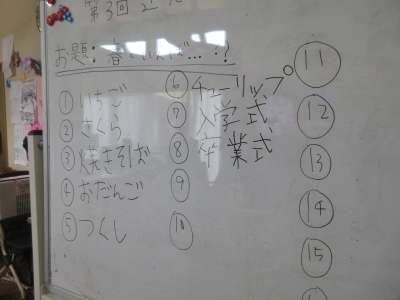 第3回
お題：春といえば…？
① いちご
② さくら
③ 焼き引お
④ おだんご
⑤ つくし
⑥ チューリップ
⑦ 入学式
⑧ 卒業式
⑨
⑩
⑪
⑫
⑬
⑭
⑮